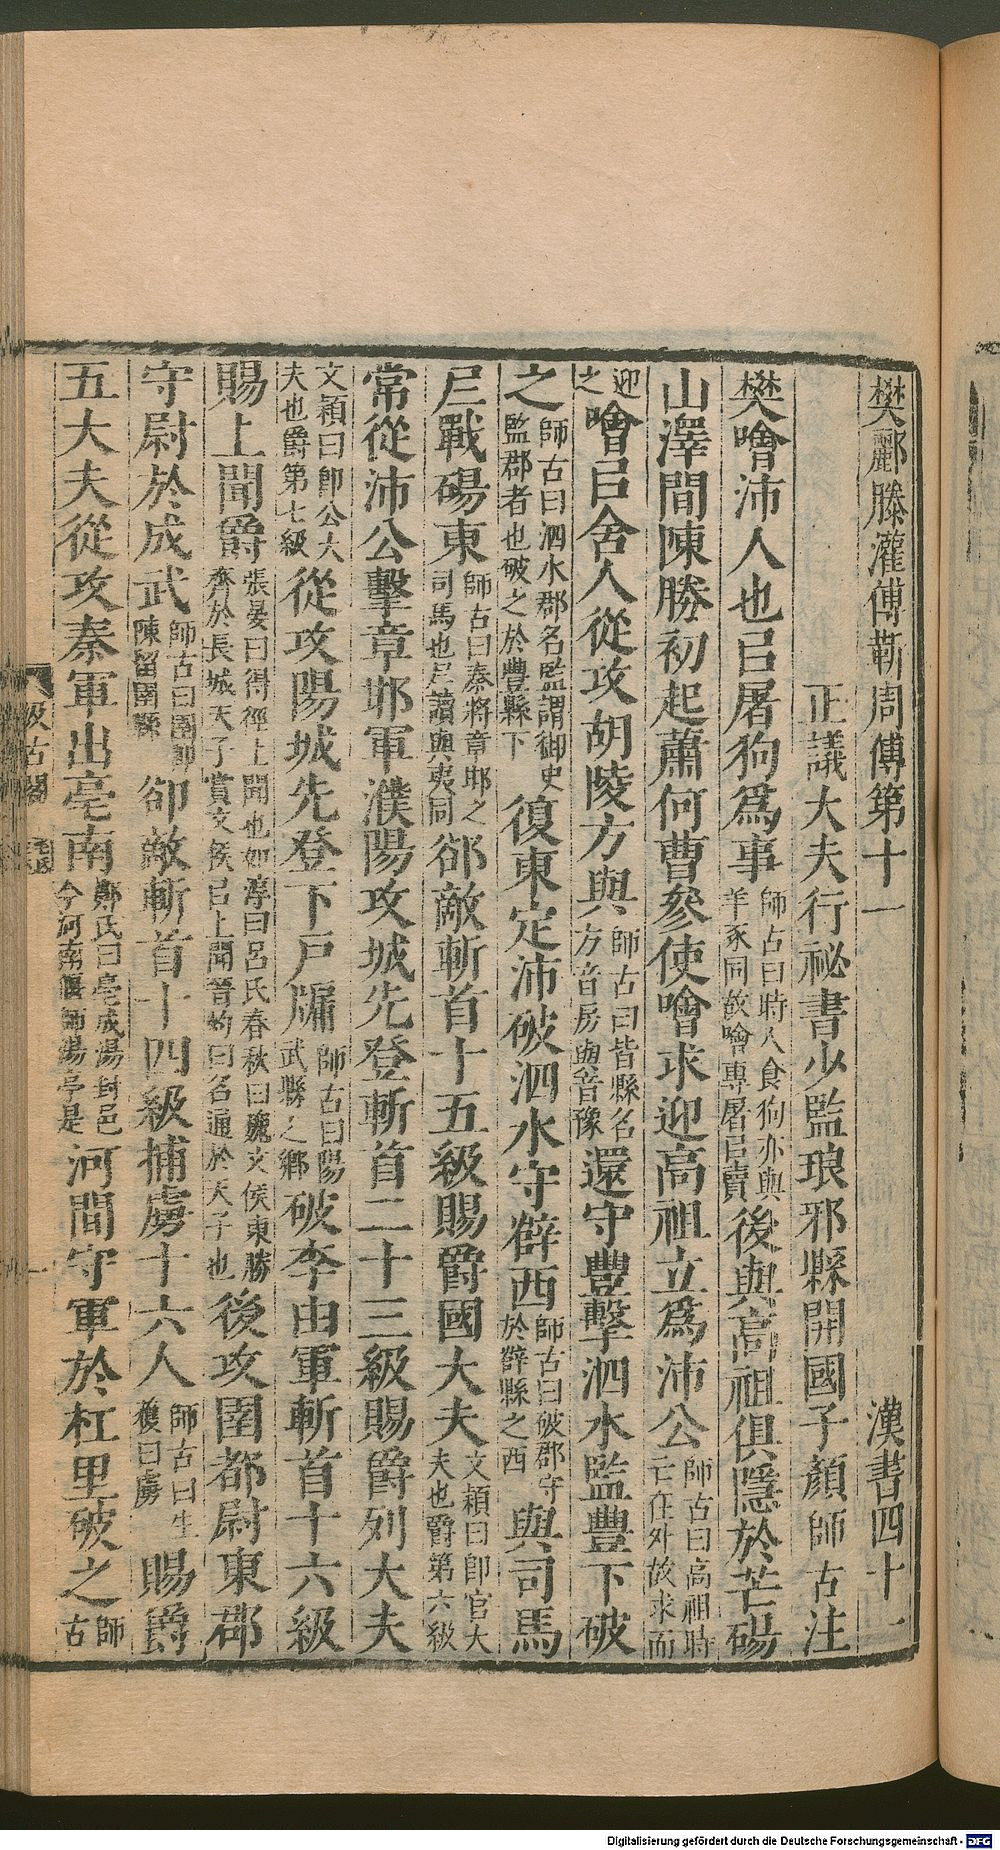 樊酈滕灌傅靳周傳第十一 漢書四十一
正議大夫行祕書少監琅邪縣開國子顏師古注
樊噲沛人也㠯屠狗爲事師古曰時人食狗亦與羊豕同故噲專屠㠯賣後與高祖俱隱於芒碭
山澤間陳勝初起蕭何曹參使噲求迎高祖立爲沛公師古曰高祖時亡在外故求而
迎之噲㠯舍人從攻胡陵方與師古曰皆縣名方音房與音豫還守豐擊泗水監豐下破
之師古曰泗水郡名監謂御史監郡者也破之於豐縣下復東定沛破泗水守薛西師古曰破郡守於薛縣之西與司馬
𡰥戰碭東師古曰秦將章邯之司馬也𡰥讀與夷同郤敵斬首十五級賜爵國大夫文穎曰卽官大夫也爵第六級
常從沛公擊章邯軍濮陽攻城先登斬首二十三級賜爵列大夫
文穎曰卽公大夫也爵第七級從攻陽城先登下戶牖師古曰陽武縣之鄉破李由軍斬首十六級
賜上聞爵張晏曰得徑上聞也如淳曰呂氏春秋曰魏文侯東勝齊於長城天子賞文侯㠯上聞晉灼曰名通於天子也後攻圉都尉東郡
守尉於成武師古曰圉卽陳留圉縣卻敵斬首十四級捕虜十六人師古曰生獲曰虜賜爵
五大夫從攻秦軍出亳南鄭氏曰亳成湯封邑今河南偃師湯亭是河間守軍於杠里破之師古
汲古閣
毛氏
Digitalisierung gefördert durch die Deutsche Forschungsgemeinschaft - DFG